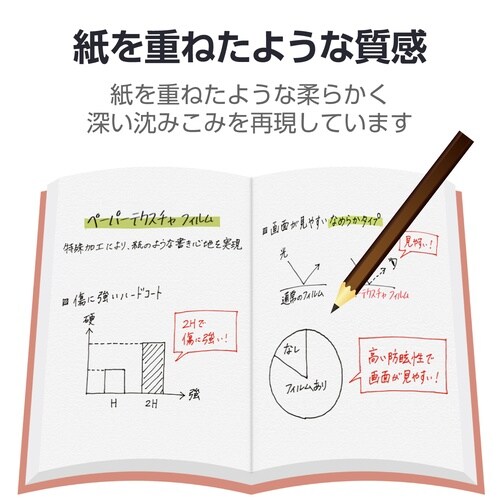 紙を重ねたような質感
紙を重ねたような柔らかく
深い沈みこみを再現しています
ペーパーテクスチャフィルム
特殊加工により、紙のような書き心地を実現
■傷に強いハードコート
硬
2Hで
傷に強い!
強
H
2H
■画面が見やすいなめらかタイプ
光
見やすい!
通常のフィルム
テクスチャフィルム
なし
フィルムあり
高い防眩性で
画面が見やすい!